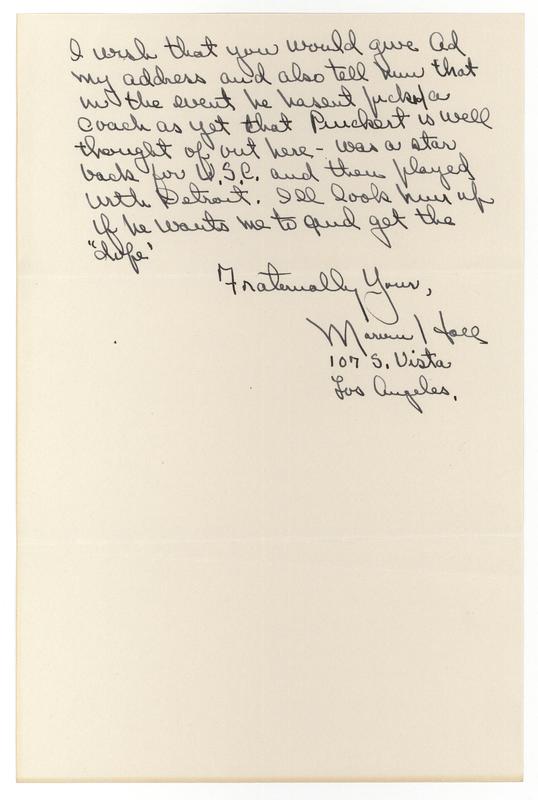 I wish that you would give Ad
my address and also tell him that
in the event he hasent picked a
coach as yet that Pinckert is well
thought of out here - was a star
back for U.S.C. and then played
with Detroit. I'll look him up
if he wants me to and get the
"dope'
Fraternally Yours,
107 S. Vista
Los Angeles.